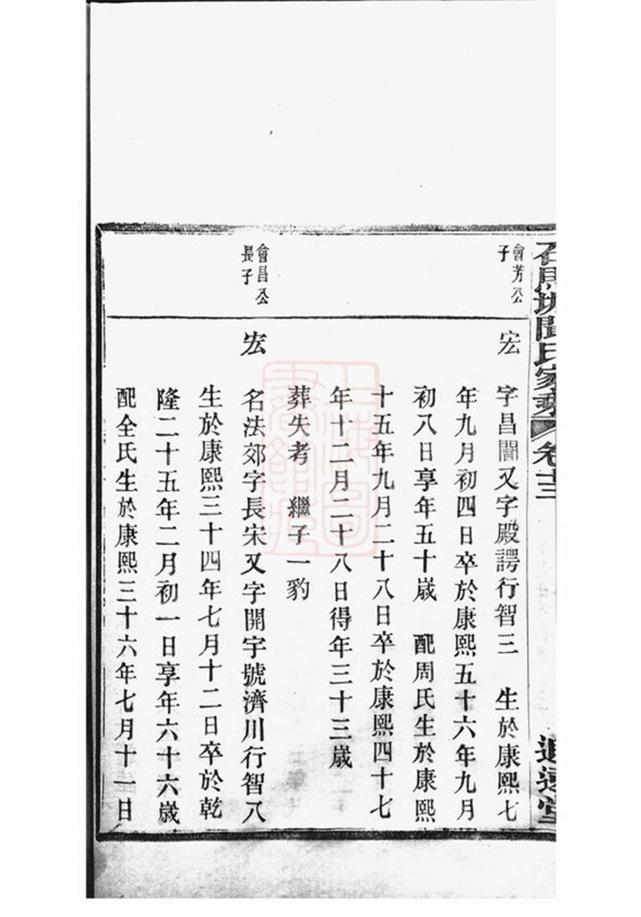 氏家乘 卷十三
追遠堂
會芳公
子
宏 字昌又字殿諤行智三 生於康熙七
年九月初四日卒於康熙五十六年九月
初八日享年五十歲 配周氏生於康熙
十五年九月二十八日卒於康熙四十七
年十二月二十八日得年三十三歲
葬失考 繼子一豹
會昌公
長子
宏 名法郊字長宋又字開宇號濟川行智八
生於康熙三十四年七月十二日卒於乾
隆二十五年二月初一日享年六十六歲
配全氏生於康熙三十六年七月十一日